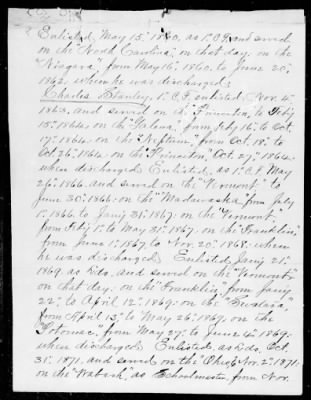 Enlisted, May 15" 1860, as 1" C.F. and served
on the North Carolina, on that day, on the
"Niagara", from May 16" 1860, to June 20"
1862, when he was discharged;
Charles Stanley, 1" C.F. enlisted, Nov. 4"
1863, and served on the "Princeton", to Feb'y
15" 1864; on the "Galena", from Feb'y 16" to Oct.
17" 1864; on the "Neptune", from Oct. 18" to
Oct. 26" 1864; on the "Princeton", Oct. 27" 1864;
when discharged. Enlisted, as 1" C.F. May
26" 1866, and served on the "Vermont", to
June 30" 1866; on the "Madawaska from July
1" 1866 to Jan'y 31" 1867; on the "Vermont",
from Feb'y 1" to May 31" 1867; on the "Franklin"
from June 1" 1867, to Nov. 20" 1868; when
he was discharged. Enlisted, Jan'y 21"
1869, as and served on the "Vermont"
on that day; on the "Franklin", from Jan'y
22" to April 12" 1869; on the
from April 13" to May 26" 1869; on the
"Potomac", from May 27" to June 4" 1869;
when discharged. Enlisted, as Oct.
31" 1871, and served on the "Ohio", Nov. 2" 1871;
on the "Wabash", as Schoolmaster, from Nov.